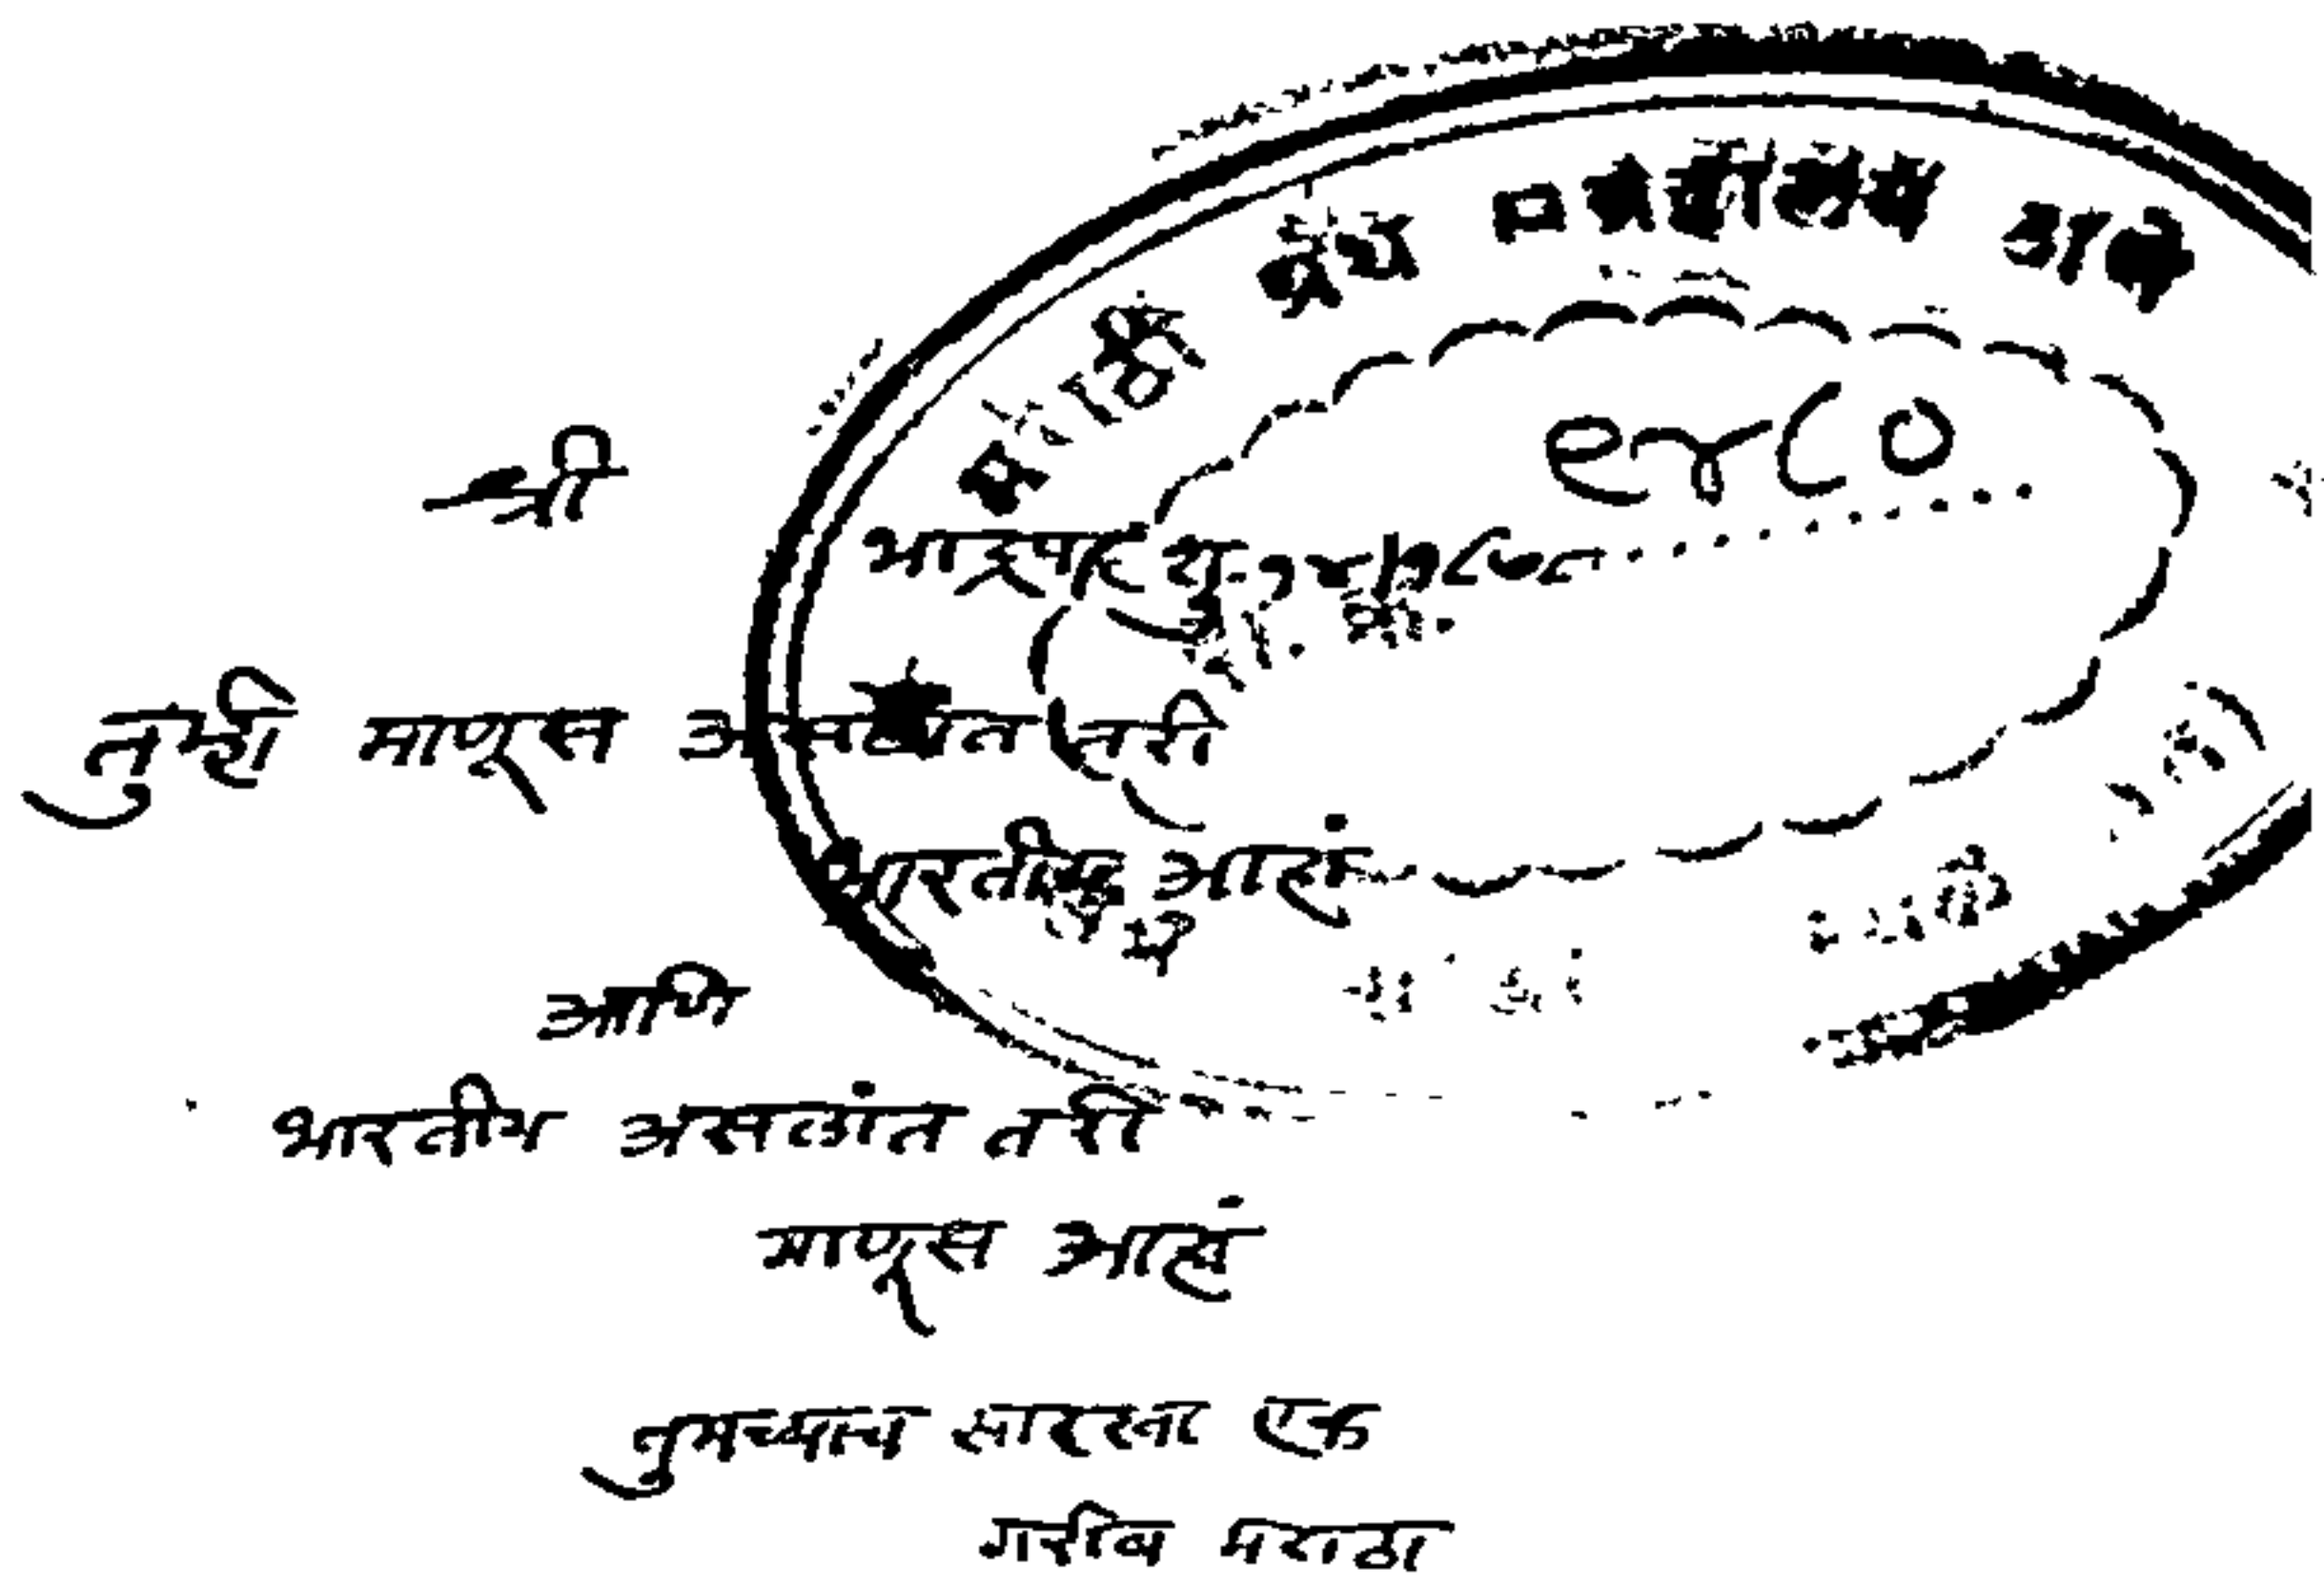 श्री
मराठी ग्रंथ संग्रहालय ठाणे
भाद्रपद शु.
तुम्ही माणूस असलांत तरी
भारतीय आहां
आणि
भारतीय असलांत तरी
माणूस आहां
तुमच्याच सारखा एक
गरीब मराठा